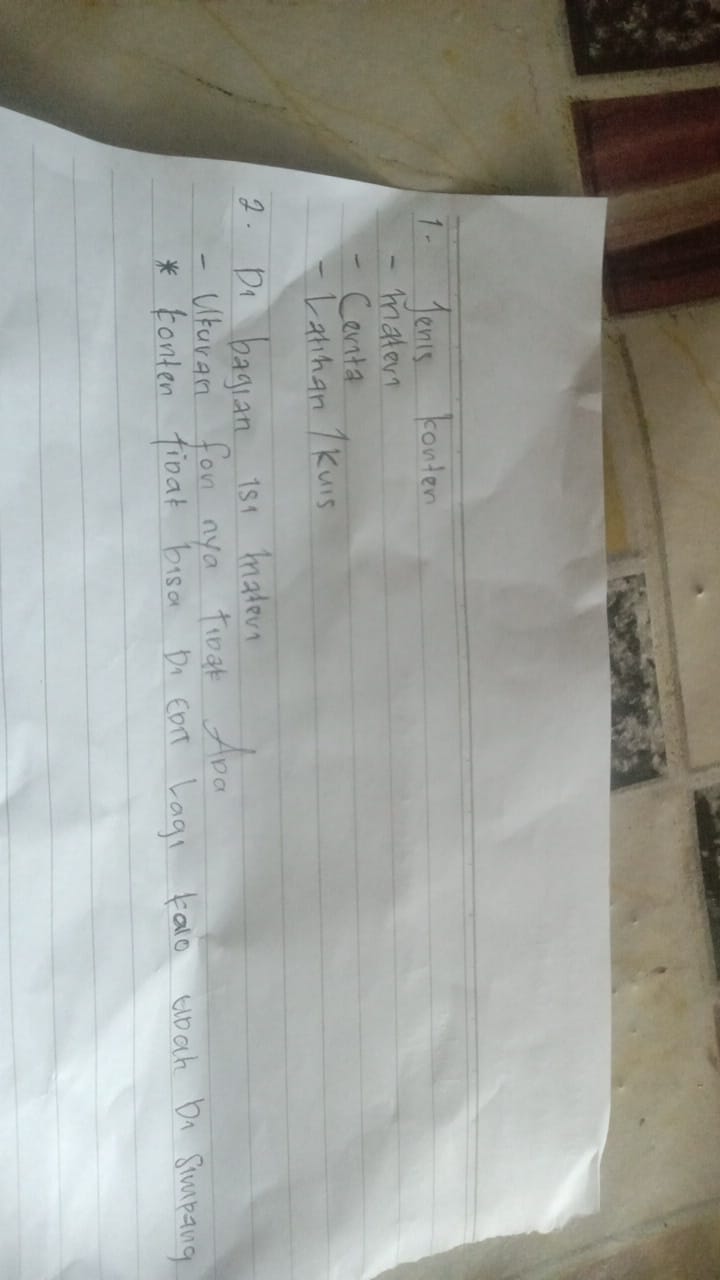 1. Jenis konten
- materi
- Cerita
- Latihan / Kuis
2. Di bagian isi materi
- Ukuran fon nya tidak Ada
* konten tidak bisa Di EDIT Lagi kalo udah Di Simpang